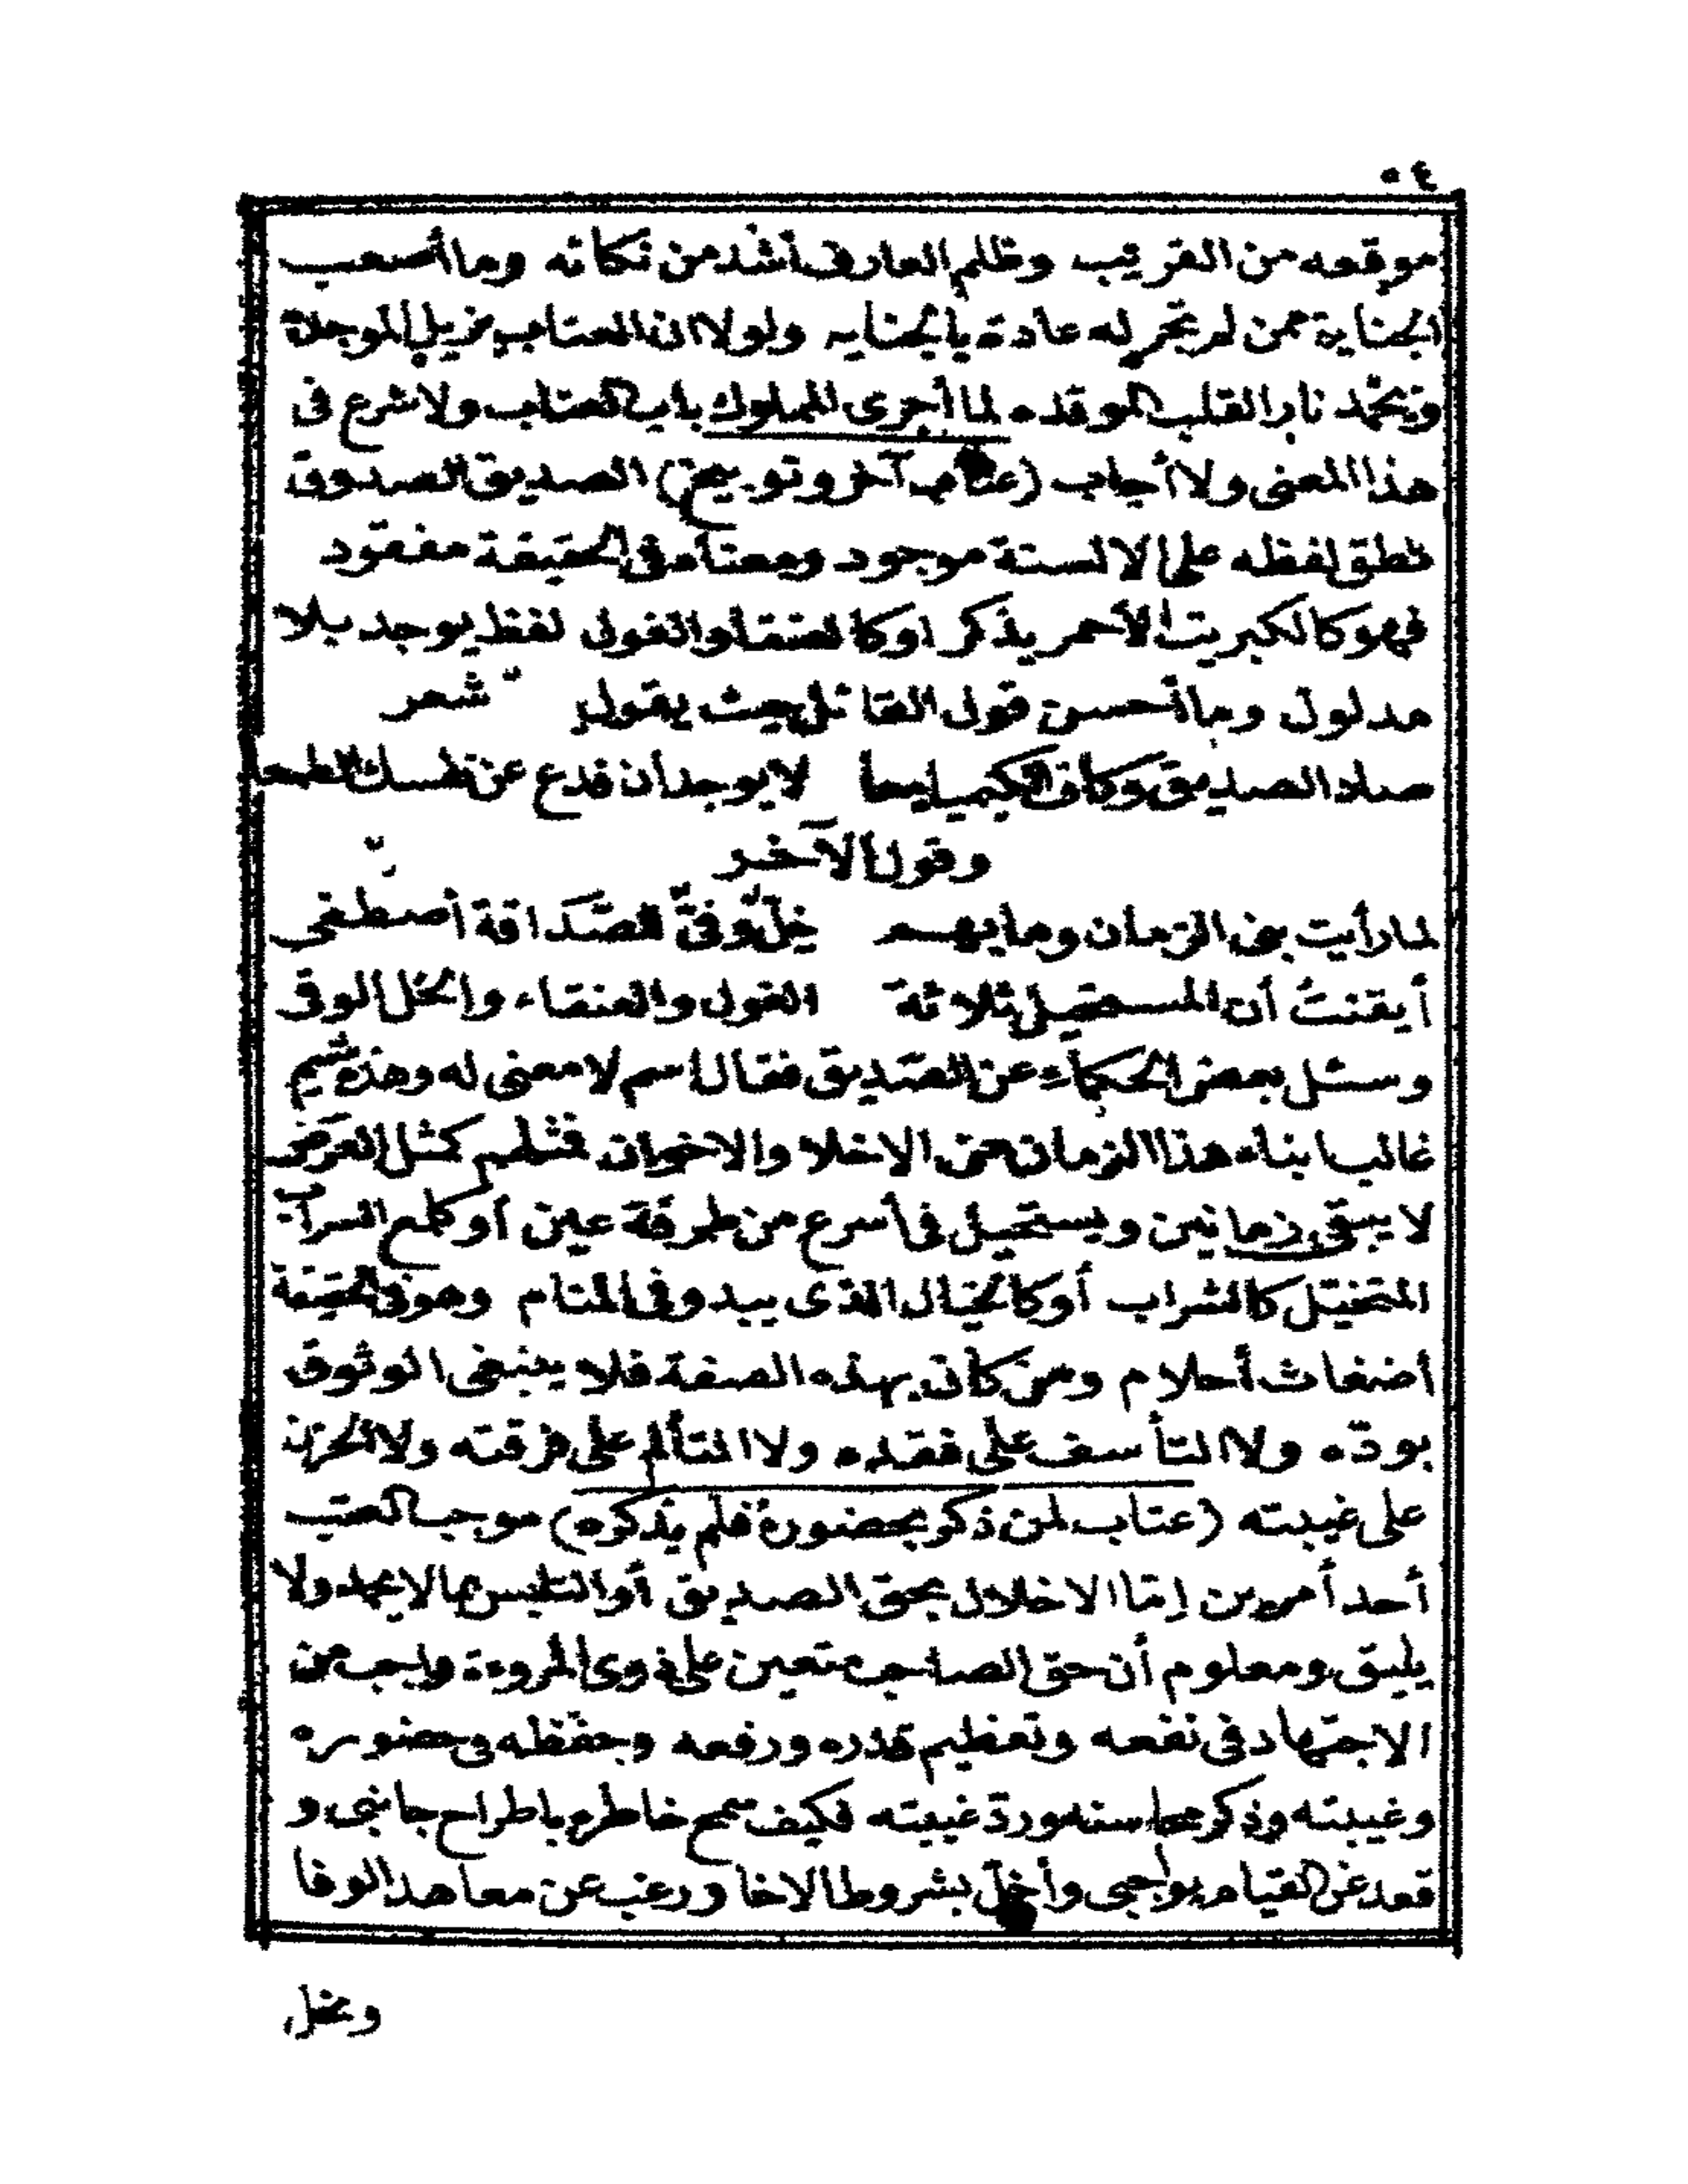 ٤٠
موقعه من القريب وظلم العارف أشد من نكاته وما أصعب
الجناية ممن لم تجر له عادة بالجنايه ولولا ان العتاب مزيل الموجدة
وتخمد نار القلب الموقده لما أجرى المملوك باب العتاب ولا شرع فى
هذا المعنى ولا أجاب (عتاب آخر وتوبيخ) الصديق الصدوق
نطق لفظه على الالسنة موجود ومعناه فى الحقيقة مفقود
فهو كالكبريت الأحمر يذكر اوكالعنقا أوالغول لفظ يوجد بلا
مدلول وما أحسن قول القائل حيث يقول شعر
صاد الصديق وكاف الكيميا معا لا يوجدان فدع عن نفسك الطمعا
وقول الآخر
لما رأيت بنى الزمان وما بهم خِلّ وفىّ للصَّدَاقة أصطفى
أيقنتُ أن المستحيل ثلاثة الغول والعنقاء والخل الوفى
وسئل بعض الحكماء عن الصَّديق فقال اسم لا معنى له وهذه شيم
غالب ابناء هذا الزمان من الاخلا والاخوان فمثلهم كمثل العَرَض
لا يبقى زمانين ويستحيل فى أسرع من طرفة عين أو كلمع السراب
المتخيّل كالشراب أوكالخيال الذى يبدو فى المنام وهو فى الحقيقة
أضغاث أحلام ومن كان بهذه الصفة فلا ينبغى الوثوق
بودّه ولا التأسف على فقده ولا التألم على فرقته ولا الحزن
على غيبته (عتاب لمن ذكر بحضوره فلم يذكره) موجب العتب
أحد أمرين إمّا الاخلال بحق الصديق أو التلبس بما لا يحمد ولا
يليق ومعلوم أن حق الصاحب متعين على ذوى المروءة واجب من
الاجتهاد فى نفعه وتعظيم قدره ورفعه وحفظه فى حضوره
وغيبته وذكر محاسنه وردّ غيبته فكيف سمح خاطره باطراح جانبى و
قعد عن القيام بواجبى وأخلّ بشروط الاخا ورغب عن معاهد الوفا
وبخل